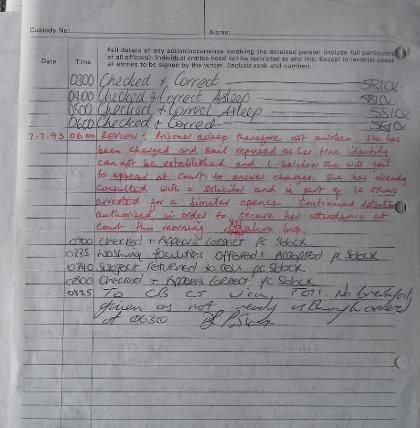 Custody No: Name:
Full details of any action/occurrence involving the detained person (include full particulars
of all officers). Individual entries need not be restricted to one line. Except in terrorist cases
all entries to be signed by the writer. (Include rank and number).
Date Time
0300 Checked & Correct
0400 Checked & Correct Asleep
0500 Checked & Correct Asleep
0600 Checked & Correct
7-7-93 0600 REVIEW: Prisoner asleep therefore not awoken. She has
been charged and bail refused as her true identity
cannot be established and I believe she will fail
to appear at court to answer charges. She has already
consulted with a solicitor and is part of 14 others
arrested for a similar offence. Continued detention
authorised in order to secure her attendance at
court this morning. Insp.
0700 Checked & Appears Correct PC
0735 Washing facilities Offered & Accepted PC
0740 Subject returned to cell PC
0800 Checked & Appears Correct PC
0825 To No Breakfast
given as not ready although ordered
at 0630